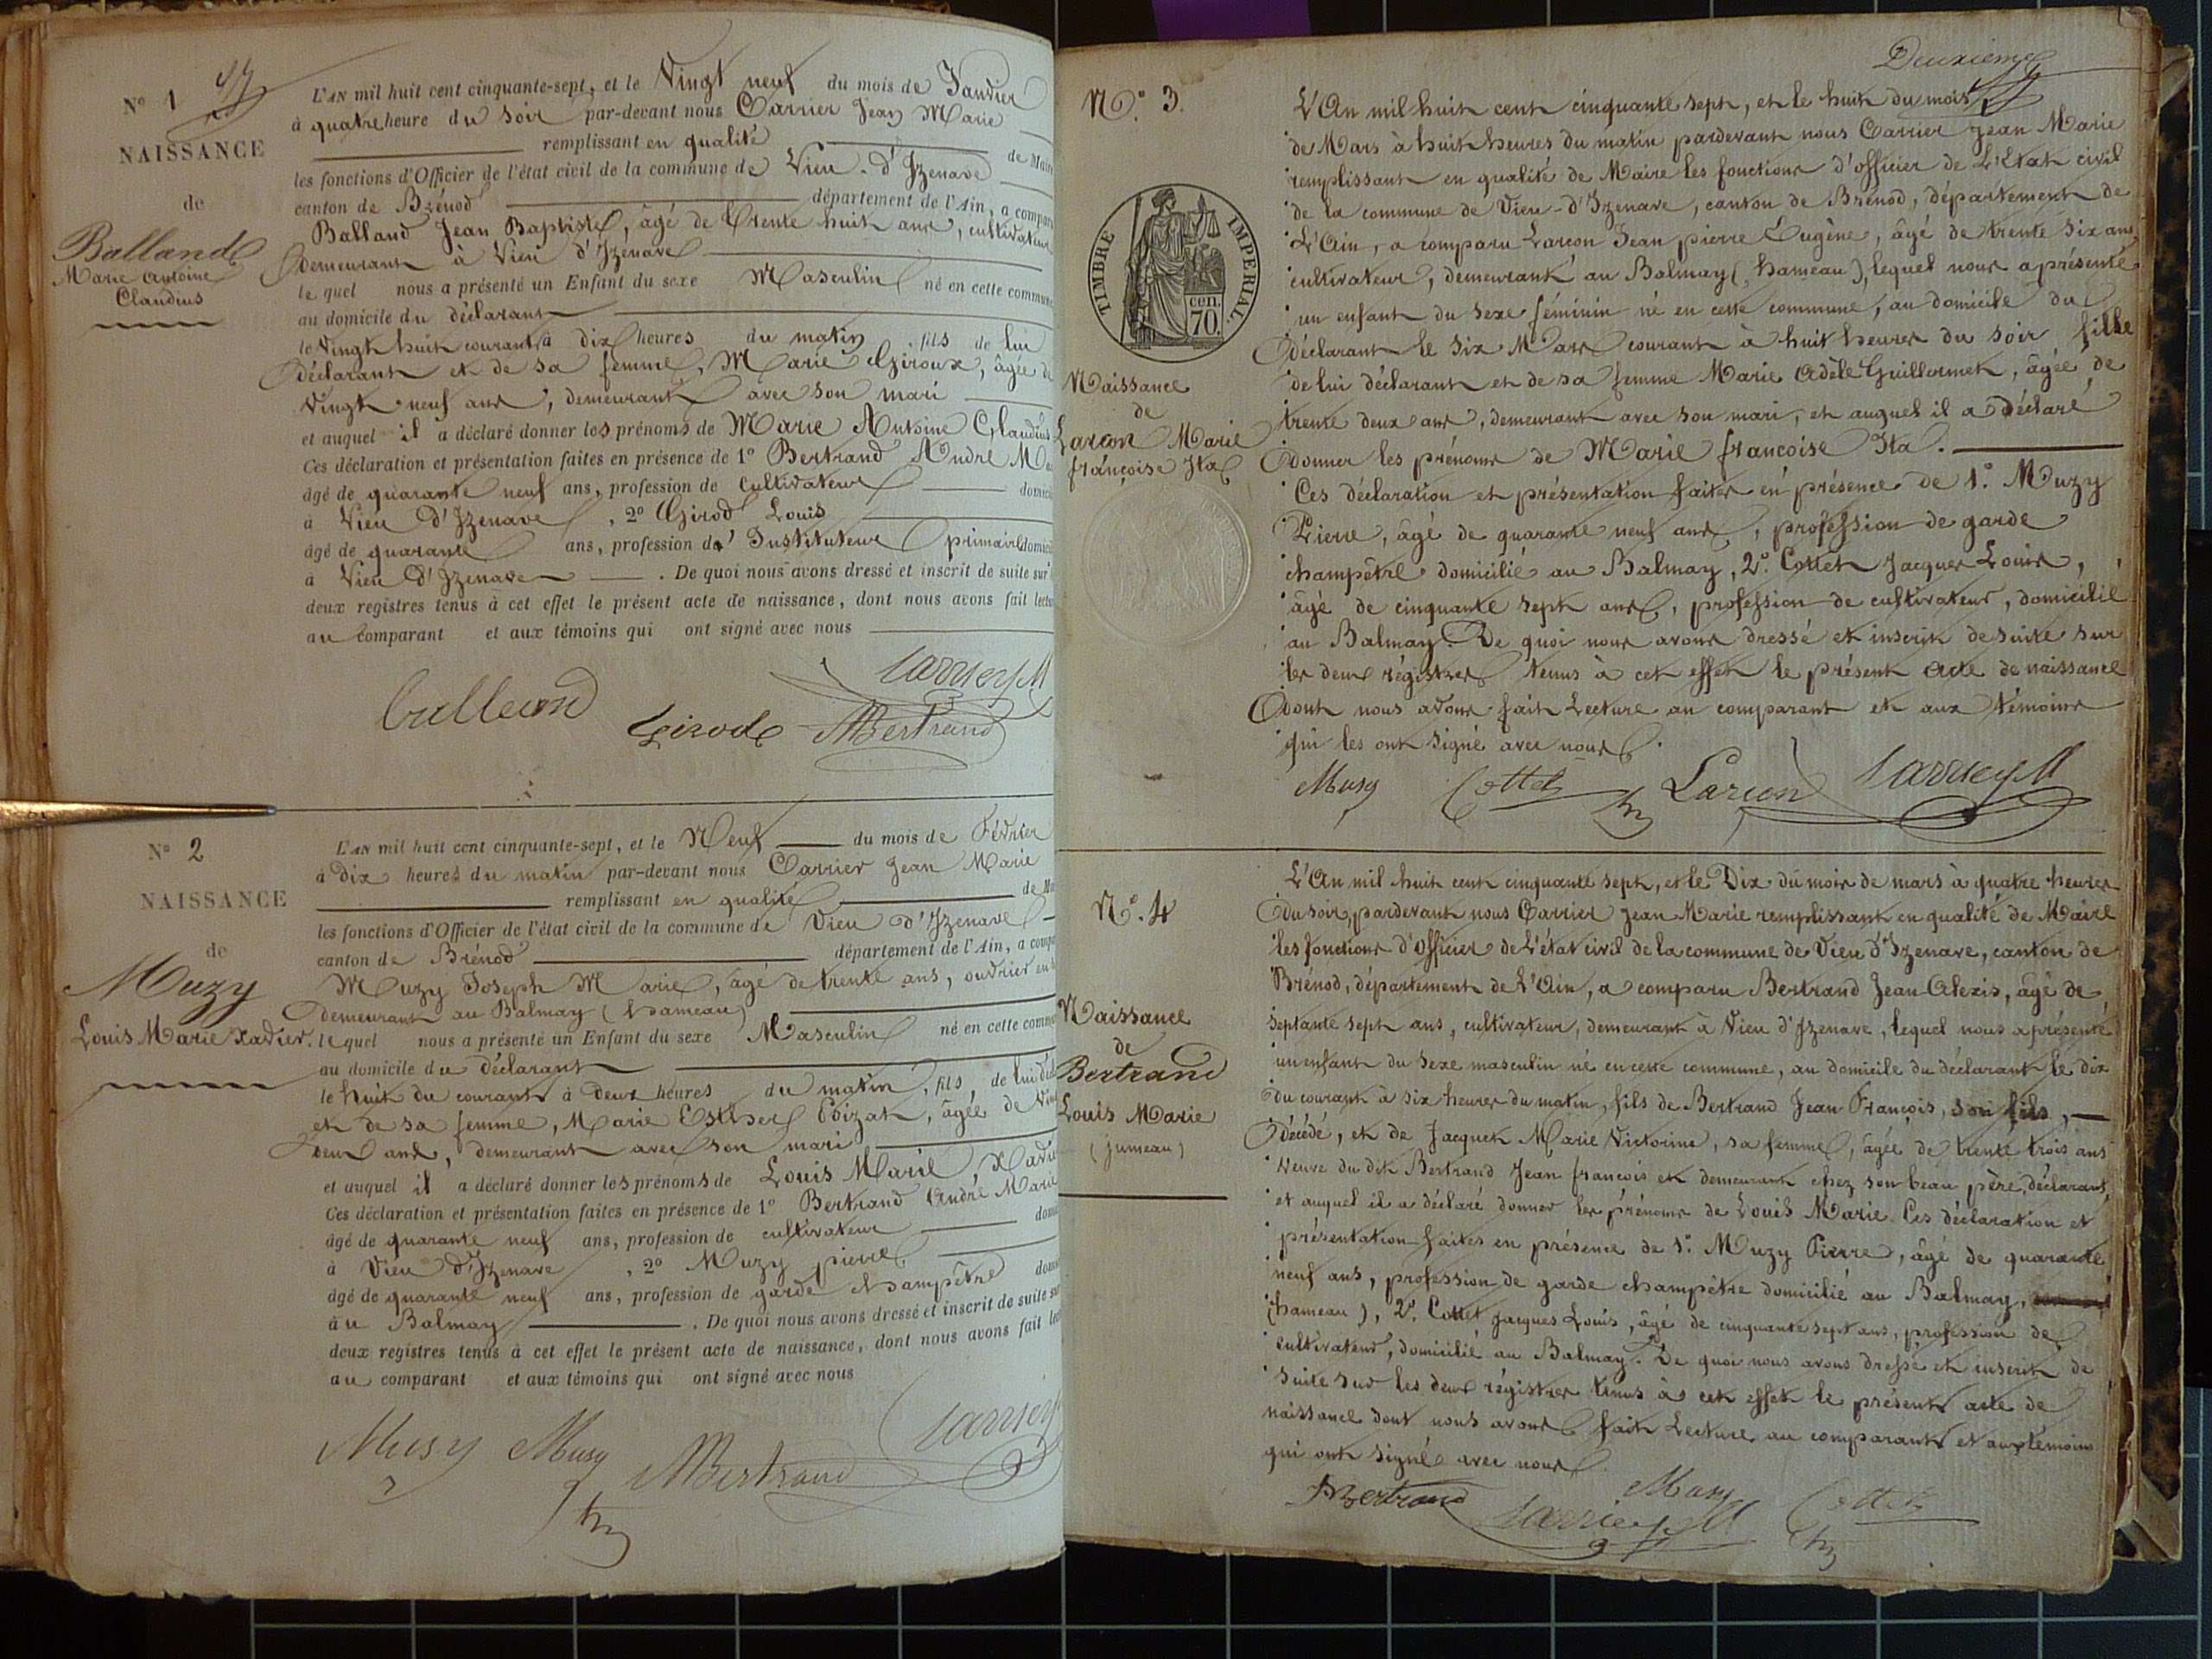 N° 1
NAISSANCE
de
Balland
Marie Antoine
Claudius
L'AN mil huit cent cinquante-sept, et le Vingt neuf du mois de Janvier
à quatre heure du soir par-devant nous Carrier Jean Marie
remplissant en qualité de Maire
les fonctions d'Officier de l'état civil de la commune de Vieu-d'Izenave
canton de Brénod département de l'Ain, a comparu
Balland Jean Baptiste, âgé de trente huit ans, cultivateur
demeurant à Vieu d'Izenave
le quel nous a présenté un Enfant du sexe Masculin né en cette commune
au domicile du déclarant
le Vingt huit courant à dix heures du matin, fils de lui
déclarant et de sa femme, Marie Giroux, âgée de
Vingt neuf ans, demeurant avec son mari
et auquel il a déclaré donner les prénoms de Marie Antoine Claudius
Ces déclaration et présentation faites en présence de 1° Bertrand André M
âgé de quarante neuf ans, profession de Cultivateur domicil
à Vieu d'Izenave, 2° Girod Louis
âgé de quarante ans, profession d' Instituteur primaire domicil
à Vieu d'Izenave. De quoi nous avons dressé et inscrit de suite sur
deux registres tenus à cet effet le présent acte de naissance, dont nous avons fait lectu
au Comparant et aux témoins qui ont signé avec nous
Carrier JM
Balland Girod MBertrand
N° 2
NAISSANCE
de
Muzy
Louis Marie Xavier.
L'AN mil huit cent cinquante-sept, et le Neuf du mois de Février
à Dix heures du matin par-devant nous Carrier Jean Marie
remplissant en qualité de M
les fonctions d'Officier de l'état civil de la commune de Vieu d'Izenave
canton de Brénod département de l'Ain, a comp
Muzy Joseph Marie, âgé de trente ans, ouvrier en
demeurant au Balmay (hameau)
le quel nous a présenté un Enfant du sexe Masculin né en cette commu
au domicile du déclarant
le huit du courant à deux heures du matin, fils, de lui dé
et de sa femme, Marie Esther Poizat, âgée de Vin
deux ans, demeurant avec son mari
et auquel il a déclaré donner les prénoms de Louis Marie Xavie
Ces déclaration et présentation faites en présence de 1° Bertrand André Marie
âgé de quarante neuf ans, profession de cultivateur dom
à Vieu d'Izenave, 2° Muzy pierre
âgé de quarante neuf ans, profession de garde champêtre dom
àu Balmay. De quoi nous avons dressé et inscrit de suite su
deux registres tenus à cet effet le présent acte de naissance, dont nous avons fait lec
au comparant et aux témoins qui ont signé avec nous
Musy Musy MBertrand Carrier
Deuxieme
N.° 3.
TIMBRE IMPERIAL.
cen.
70.
Naissance
de
Larcon Marie
françoise Ita
L'An mil huit cent cinquante sept, et le huit du mois
de Mars à huit heures du matin pardevant nous Carrier Jean Marie
remplissant en qualité de Maire les fonctions d'officier de L'Etat civil
de la commune de Vieu-d'Izenave, canton de Brénod, département de
L'Ain, a comparu Larcon Jean pierre Eugène, âgé de trente six ans
cultivateur, demeurant au Balmay (hameau), lequel nous a présenté
un enfant du sexe féminin né en cette commune, au domicile du
déclarant le six Mars courant à huit heures du soir fille
de lui déclarant et de sa femme Marie Adèle Guillermet, âgée de
trente deux ans, demeurant avec son mari, et auquel il a déclaré
donner les prénoms de Marie francoise Ita.
Ces déclaration et présentation faites en présence de 1.° Muzy
Pierre, âgé de quarante neuf ans, profession de garde
champêtre domicilié au Balmay, 2.° Cottet Jacques Louis,
âgé de cinquante sept ans, profession de cultivateur, domicilié
au Balmay. De quoi nous avons dressé et inscrit de suite sur
les deux régistres tenus à cet effet le présent acte de naissance
dont nous avons fait Lecture au comparant et aux témoins
qui les ont signé avec nous.
Musy Cottet Larcon Carrier JM
N.° 4
Naissance
de
Bertrand
Louis Marie
(jumeau)
L'An mil huit cent cinquante sept, et le Dix du mois de mars à quatre heures
du soir, pardevant nous Carrier Jean Marie remplissant en qualité de Maire
les fonctions d'Officier de L'état civil de la commune de Vieu d'Izenave, canton de
Brénod, département de L'Ain, a comparu Bertrand Jean Alexis, âgé de
septante sept ans, cultivateur, demeurant à Vieu d'Izenave, lequel nous a présenté
un enfant du sexe masculin né en cette commune, au domicile du déclarant le dix
du courant à six heures du matin, fils de Bertrand Jean François, son fils,
décédé, et de Jacquet Marie Victorine, sa femme, âgée de trente trois ans
veuve du dit Bertrand Jean françois et demeurant chez son beau père, déclarant,
et auquel il a déclaré donner les prénoms de Louis Marie. Ces déclaration et
présentation faites en présence de 1.° Muzy Pierre, âgé de quarante
neuf ans, profession de garde champêtre domicilié au Balmay,
(hameau), 2.° Cottet Jacques Louis, âgé de cinquante sept ans, profession de
cultivateur, domicilié au Balmay. De quoi nous avons dressé et inscrit de
suite sur les deux régistres tenus à cet effet le présent acte de
naissance dont nous avons fait Lecture au comparant et aux témoins
qui ont signé avec nous.
Bertrand Carrier JM Musy Cottet